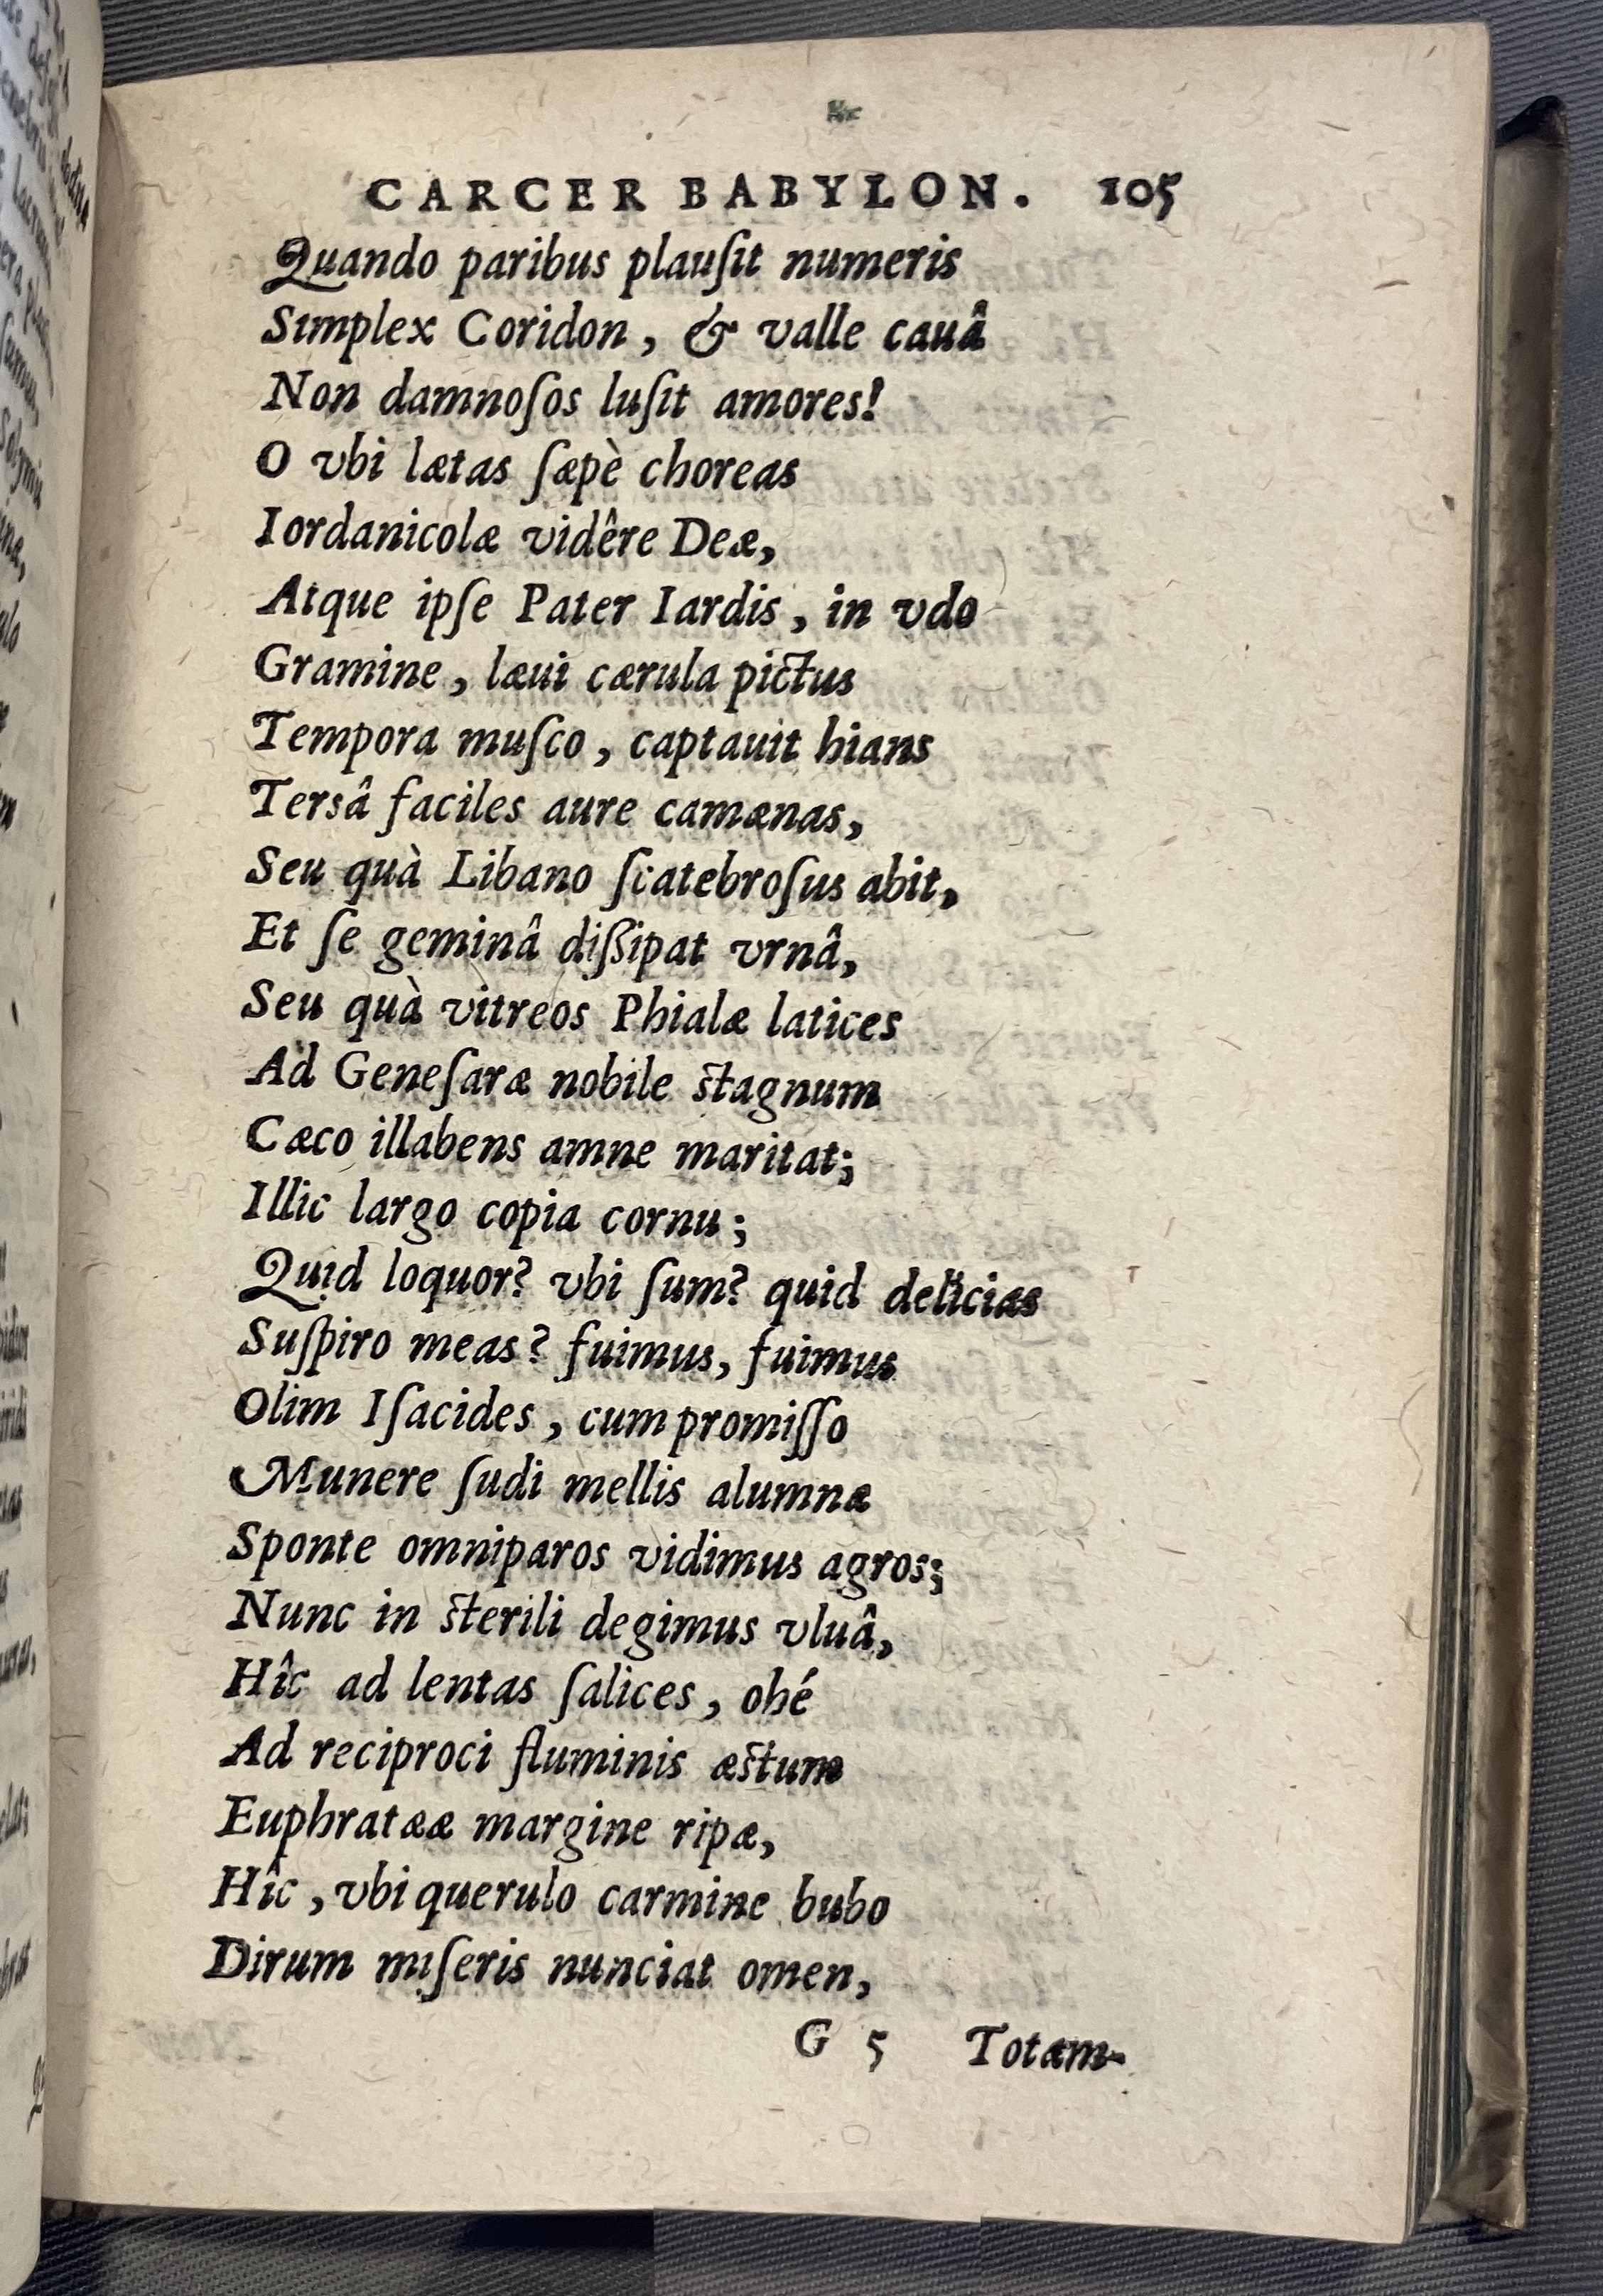 CARCER BABYLON. 105
Quando paribus plauſit numeris
Simplex Coridon, & valle cauâ
Non damnoſos luſit amores!
O vbi lætas ſæpè choreas
Iordanicolæ vidêre Deæ,
Atque ipſe Pater Iardis, in vdo
Gramine, læui cærula pictus
Tempora muſco, captauit hians
Tersâ faciles aure camænas,
Seu quà Libano ſcatebroſus abit,
Et ſe geminâ diſsipat vrnâ,
Seu quà vitreos Phialæ latices
Ad Geneſaræ nobile stagnum
Cæco illabens amne maritat;
Illic largo copia cornu;
Quid loquor? vbi ſum? quid delicias
Suſpiro meas? fuimus, fuimus
Olim Iſacides, cum promiſſo
Munere ſudi mellis alumnæ
Sponte omniparos vidimus agros;
Nunc in sterili degimus vluâ,
Hîc ad lentas ſalices, ohé
Ad reciproci fluminis æstum
Euphratææ margine ripæ,
Hîc, vbi querulo carmine bubo
Dirum miſeris nunciat omen,
G 5 Totam-